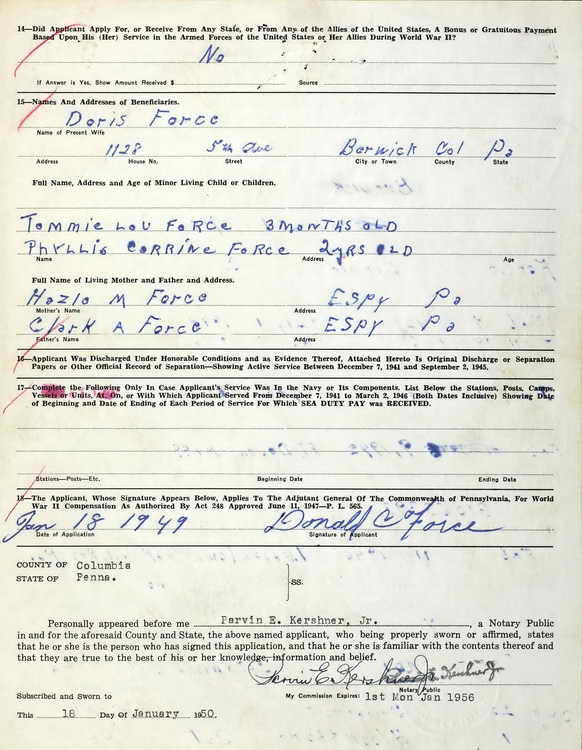 14—Did Applicant Apply For, or Receive From Any State, or From Any of the Allies of the United States, A Bonus or Gratuitous Payment
Based Upon His (Her) Service in the Armed Forces of the United States or Her Allies During World War II?
No
If Answer is Yes, Show Amount Received $ Source
15—Names And Addresses of Beneficiaries.
Doris Force
Name of Present Wife
1128 5th Ave Berwick Col Pa
Address House No. Street City or Town County State
Full Name, Address and Age of Minor Living Child or Children.
TOMMIE LOU FORCE 3 MONTHS OLD
PHYLLIS CORRINE FORCE 2 yRS OLD
Name Address Age
Full Name of Living Mother and Father and Address.
Hazle M Force ESPY Pa
Mother's Name Address
Clark A Force ESPY Pa
Father's Name Address
16—Applicant Was Discharged Under Honorable Conditions and as Evidence Thereof, Attached Hereto Is Original Discharge or Separation
Papers or Other Official Record of Separation—Showing Active Service Between December 7, 1941 and September 2, 1945.
17—Complete the Following Only In Case Applicant's Service Was In the Navy or Its Components. List Below the Stations, Posts, Camps,
Vessels or Units, At, On, or With Which Applicant Served From December 7, 1941 to March 2, 1946 (Both Dates Inclusive) Showing Date
of Beginning and Date of Ending of Each Period of Service For Which SEA DUTY PAY was RECEIVED.
Stations—Posts—Etc. Beginning Date Ending Date
18—The Applicant, Whose Signature Appears Below, Applies To The Adjutant General Of The Commonwealth of Pennsylvania, For World
War II Compensation As Authorized By Act 248 Approved June 11, 1947—P. L. 565.
Jan 18 1949 Donald C Force
Date of Application Signature of Applicant
COUNTY OF Columbia
STATE OF Penna.
SS.
Personally appeared before me Parvin E. Kershner, Jr., a Notary Public
in and for the aforesaid County and State, the above named applicant, who being properly sworn or affirmed, states
that he or she is the person who has signed this application, and that he or she is familiar with the contents thereof and
that they are true to the best of his or her knowledge, information and belief.
Parvin E. Kershner Jr.
Notary Public
Subscribed and Sworn to My Commission Expires: 1st Mon Jan 1956
This 18 Day Of January 1950.